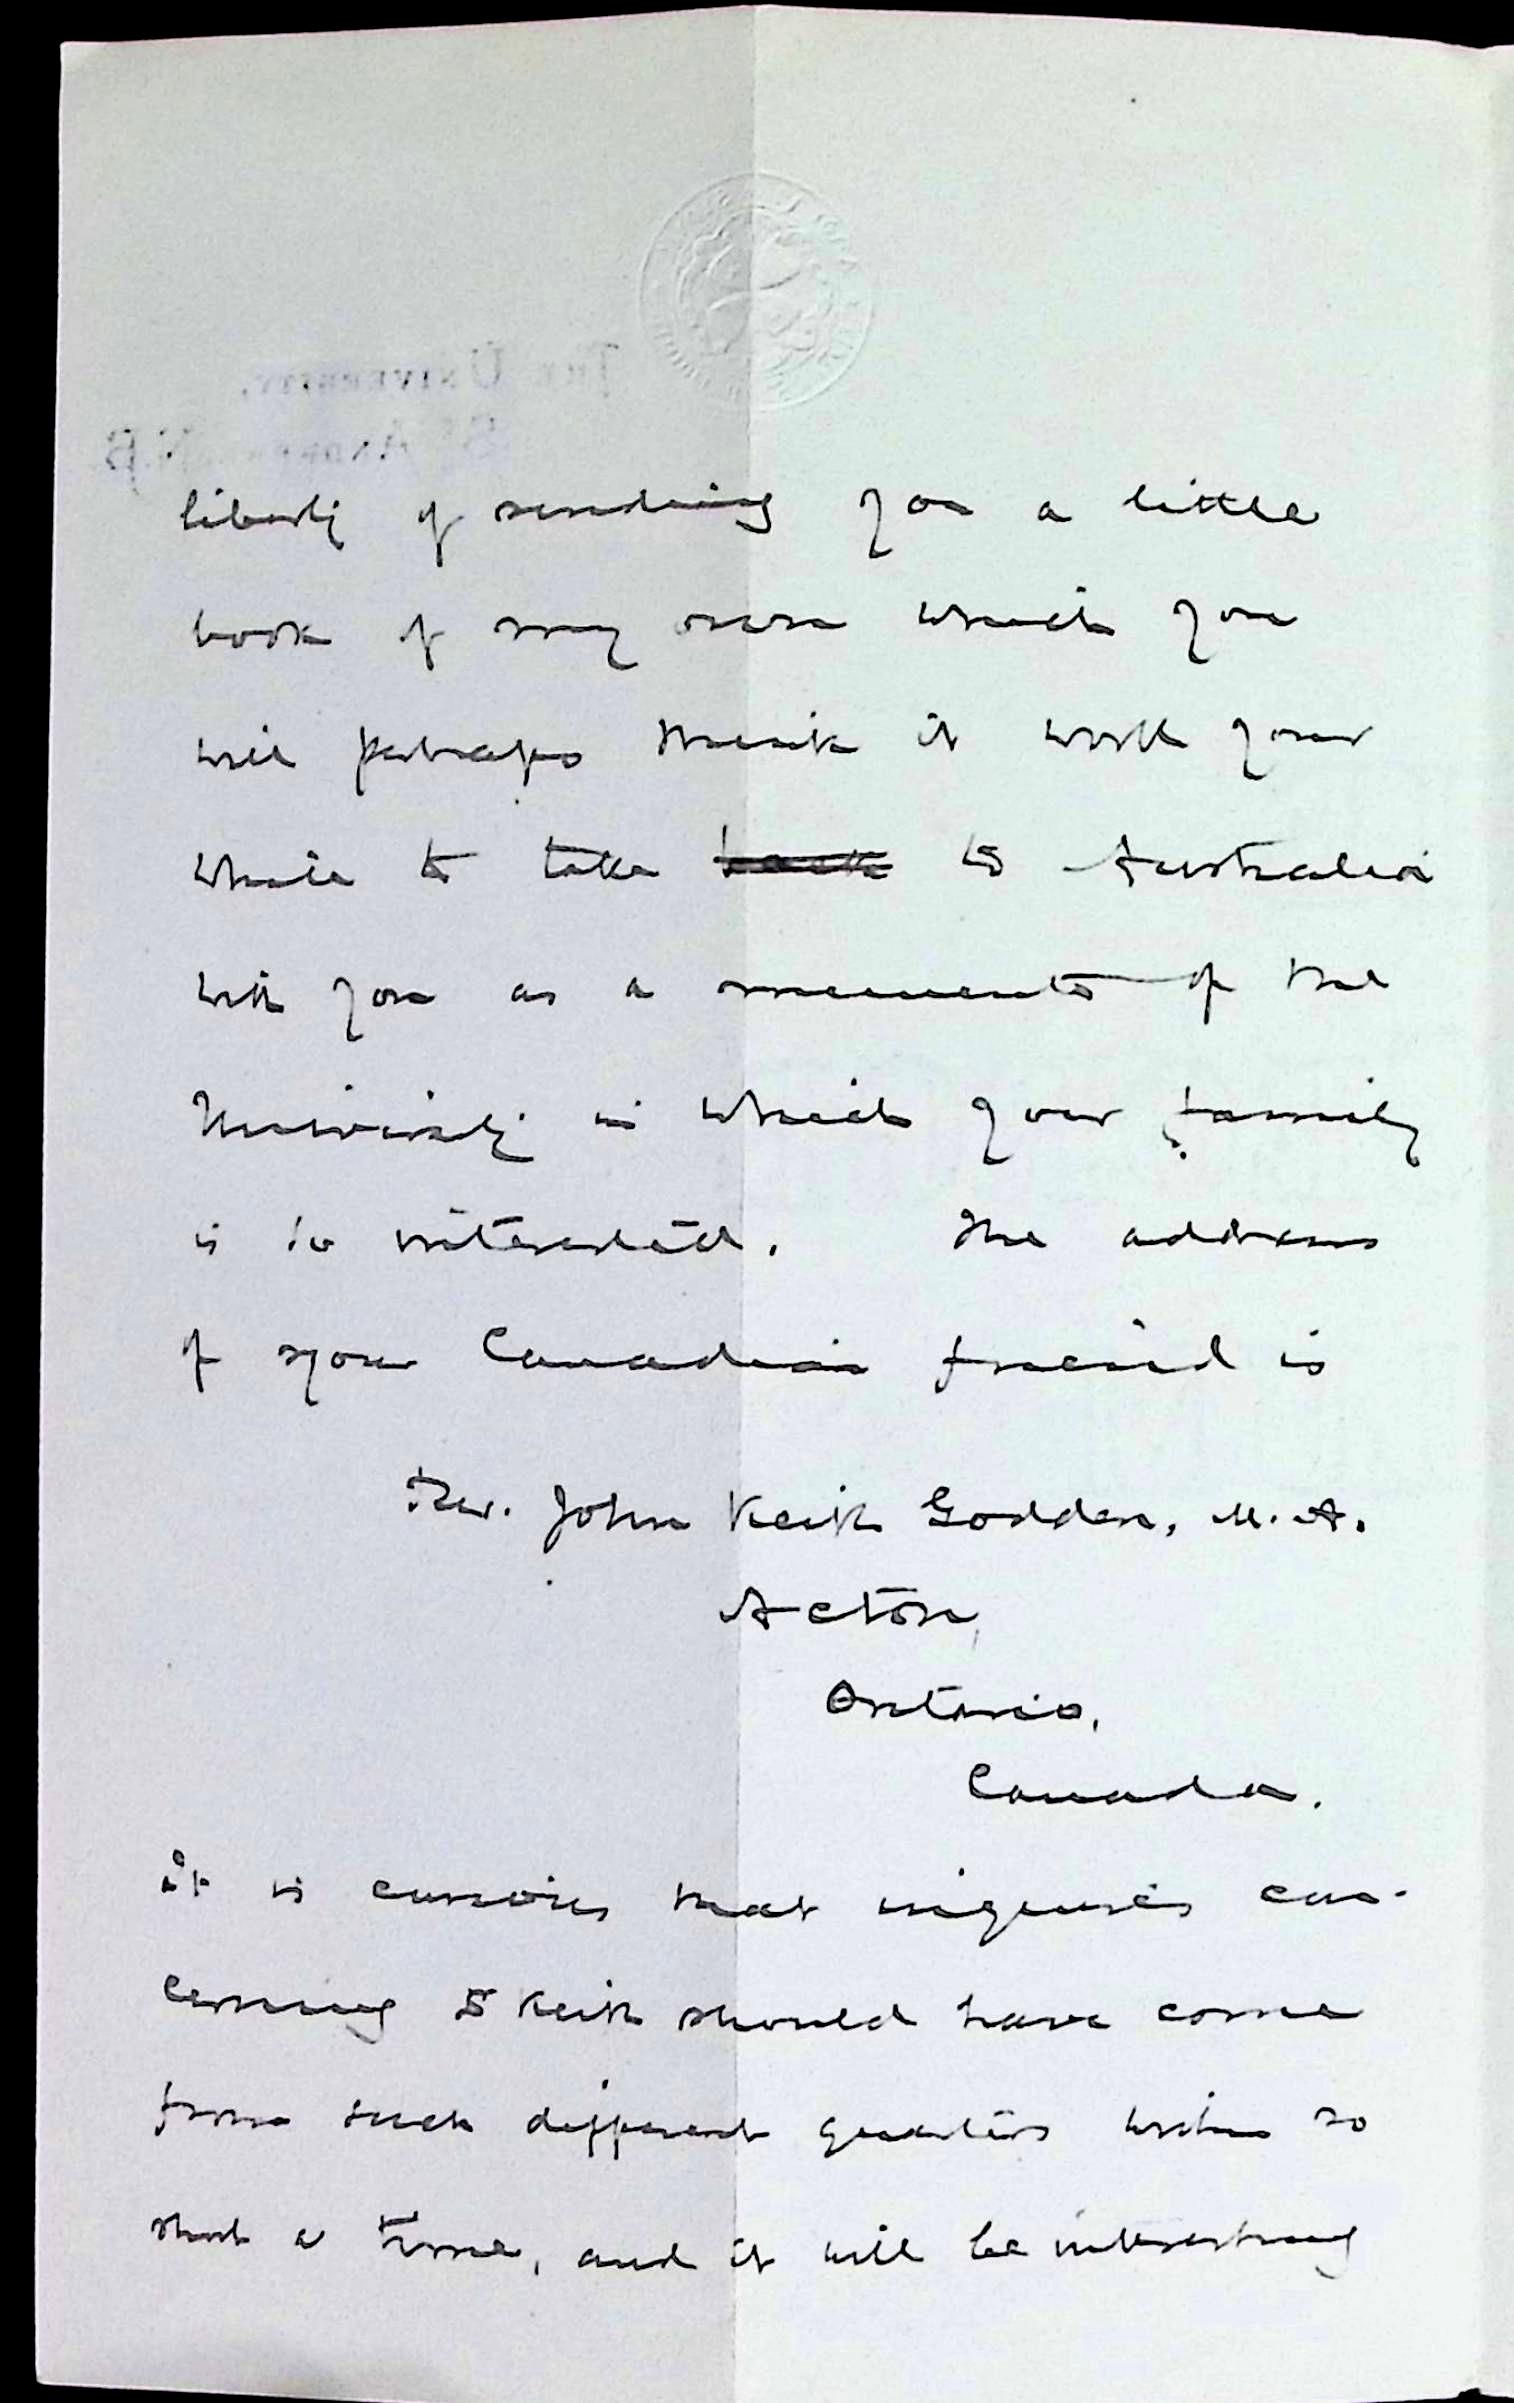 THE UNIVERSITY,
ST ANDREWS, N.B.
liberty of sending you a little
book of my own which you
will perhaps think it worth your
while to take back to Australia
with you as a memento of the
University in which your family
is so interested. The address
of your Canadian friend is
Rev. John Keith Godden, M.A.
Acton,
Ontario,
Canada.
It is curious that inquiries con-
cerning Dr Keith should have come
from such different quarters within so
short a time, and it will be interesting